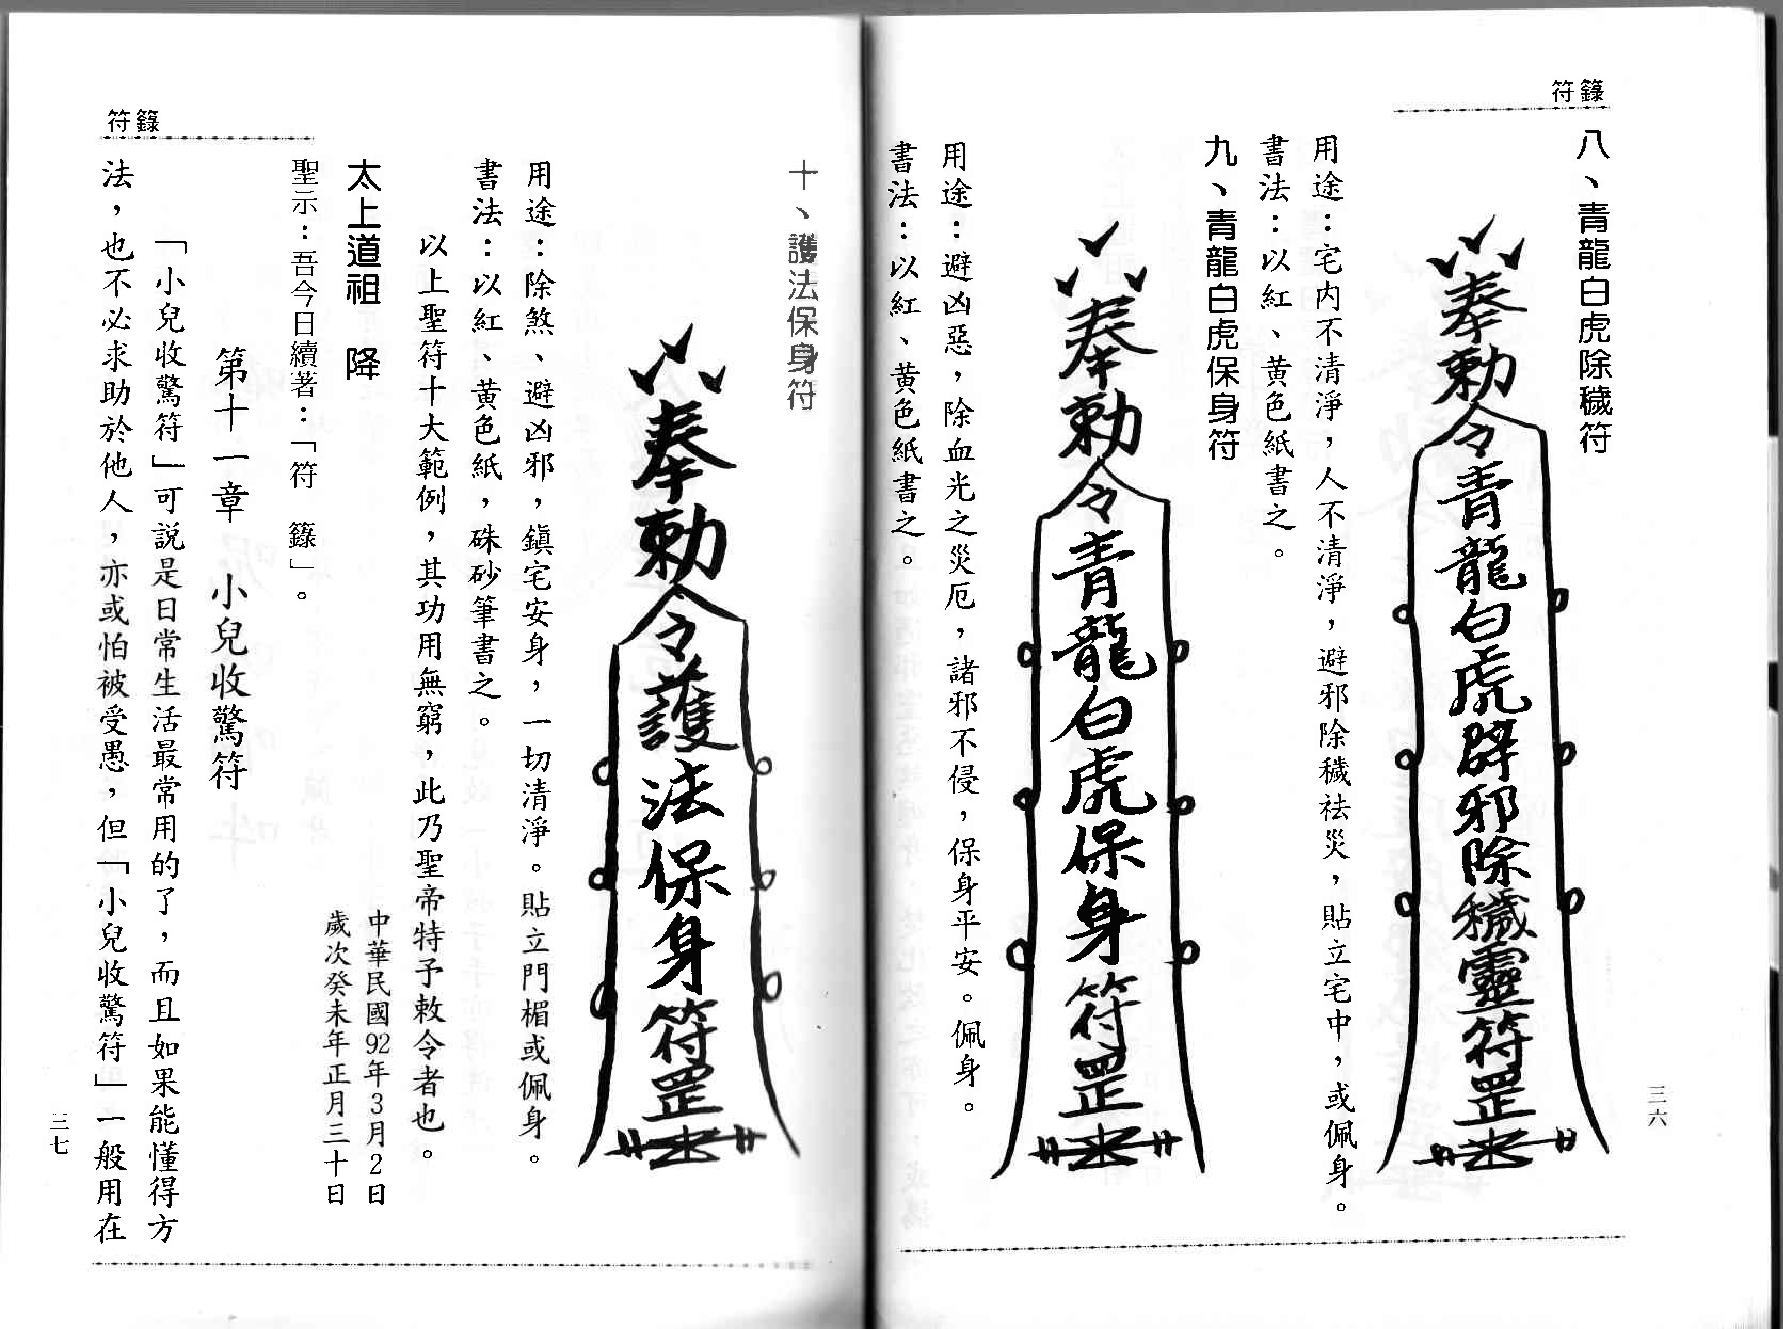 符籙
八、青龍白虎除穢符
奉勅令青龍白虎辟邪除穢靈符罡
用途：宅內不清淨，人不清淨，避邪除穢祛災，貼立宅中，或佩身。
書法：以紅、黃色紙書之。
九、青龍白虎保身符
奉勅令青龍白虎保身符罡
用途：避凶惡，除血光之災厄，諸邪不侵，保身平安。佩身。
書法：以紅、黃色紙書之。
三六
符籙
十、護法保身符
奉勅令護法保身符罡
用途：除煞、避凶邪，鎮宅安身，一切清淨。貼立門楣或佩身。
書法：以紅、黃色紙，硃砂筆書之。
以上聖符十大範例，其功用無窮，此乃聖帝特予敕令者也。
太上道祖　降
中華民國92年3月2日
歲次癸未年正月三十日
聖示：吾今日續著：「符　籙」。
第十一章　小兒收驚符
「小兒收驚符」可說是日常生活最常用的了，而且如果能懂得方
法，也不必求助於他人，亦或怕被受愚，但「小兒收驚符」一般用在
三七